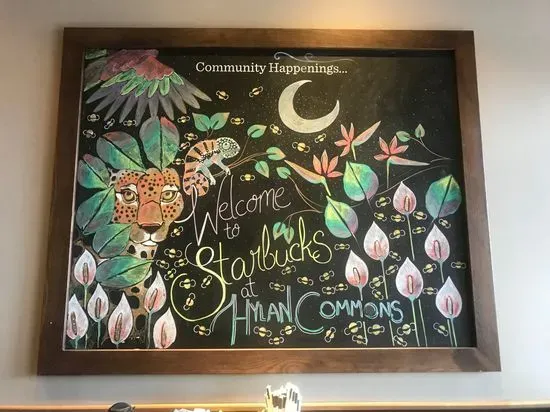 Community Happenings...
Welcome
to
Starbucks
at
HYLAN COMMONS